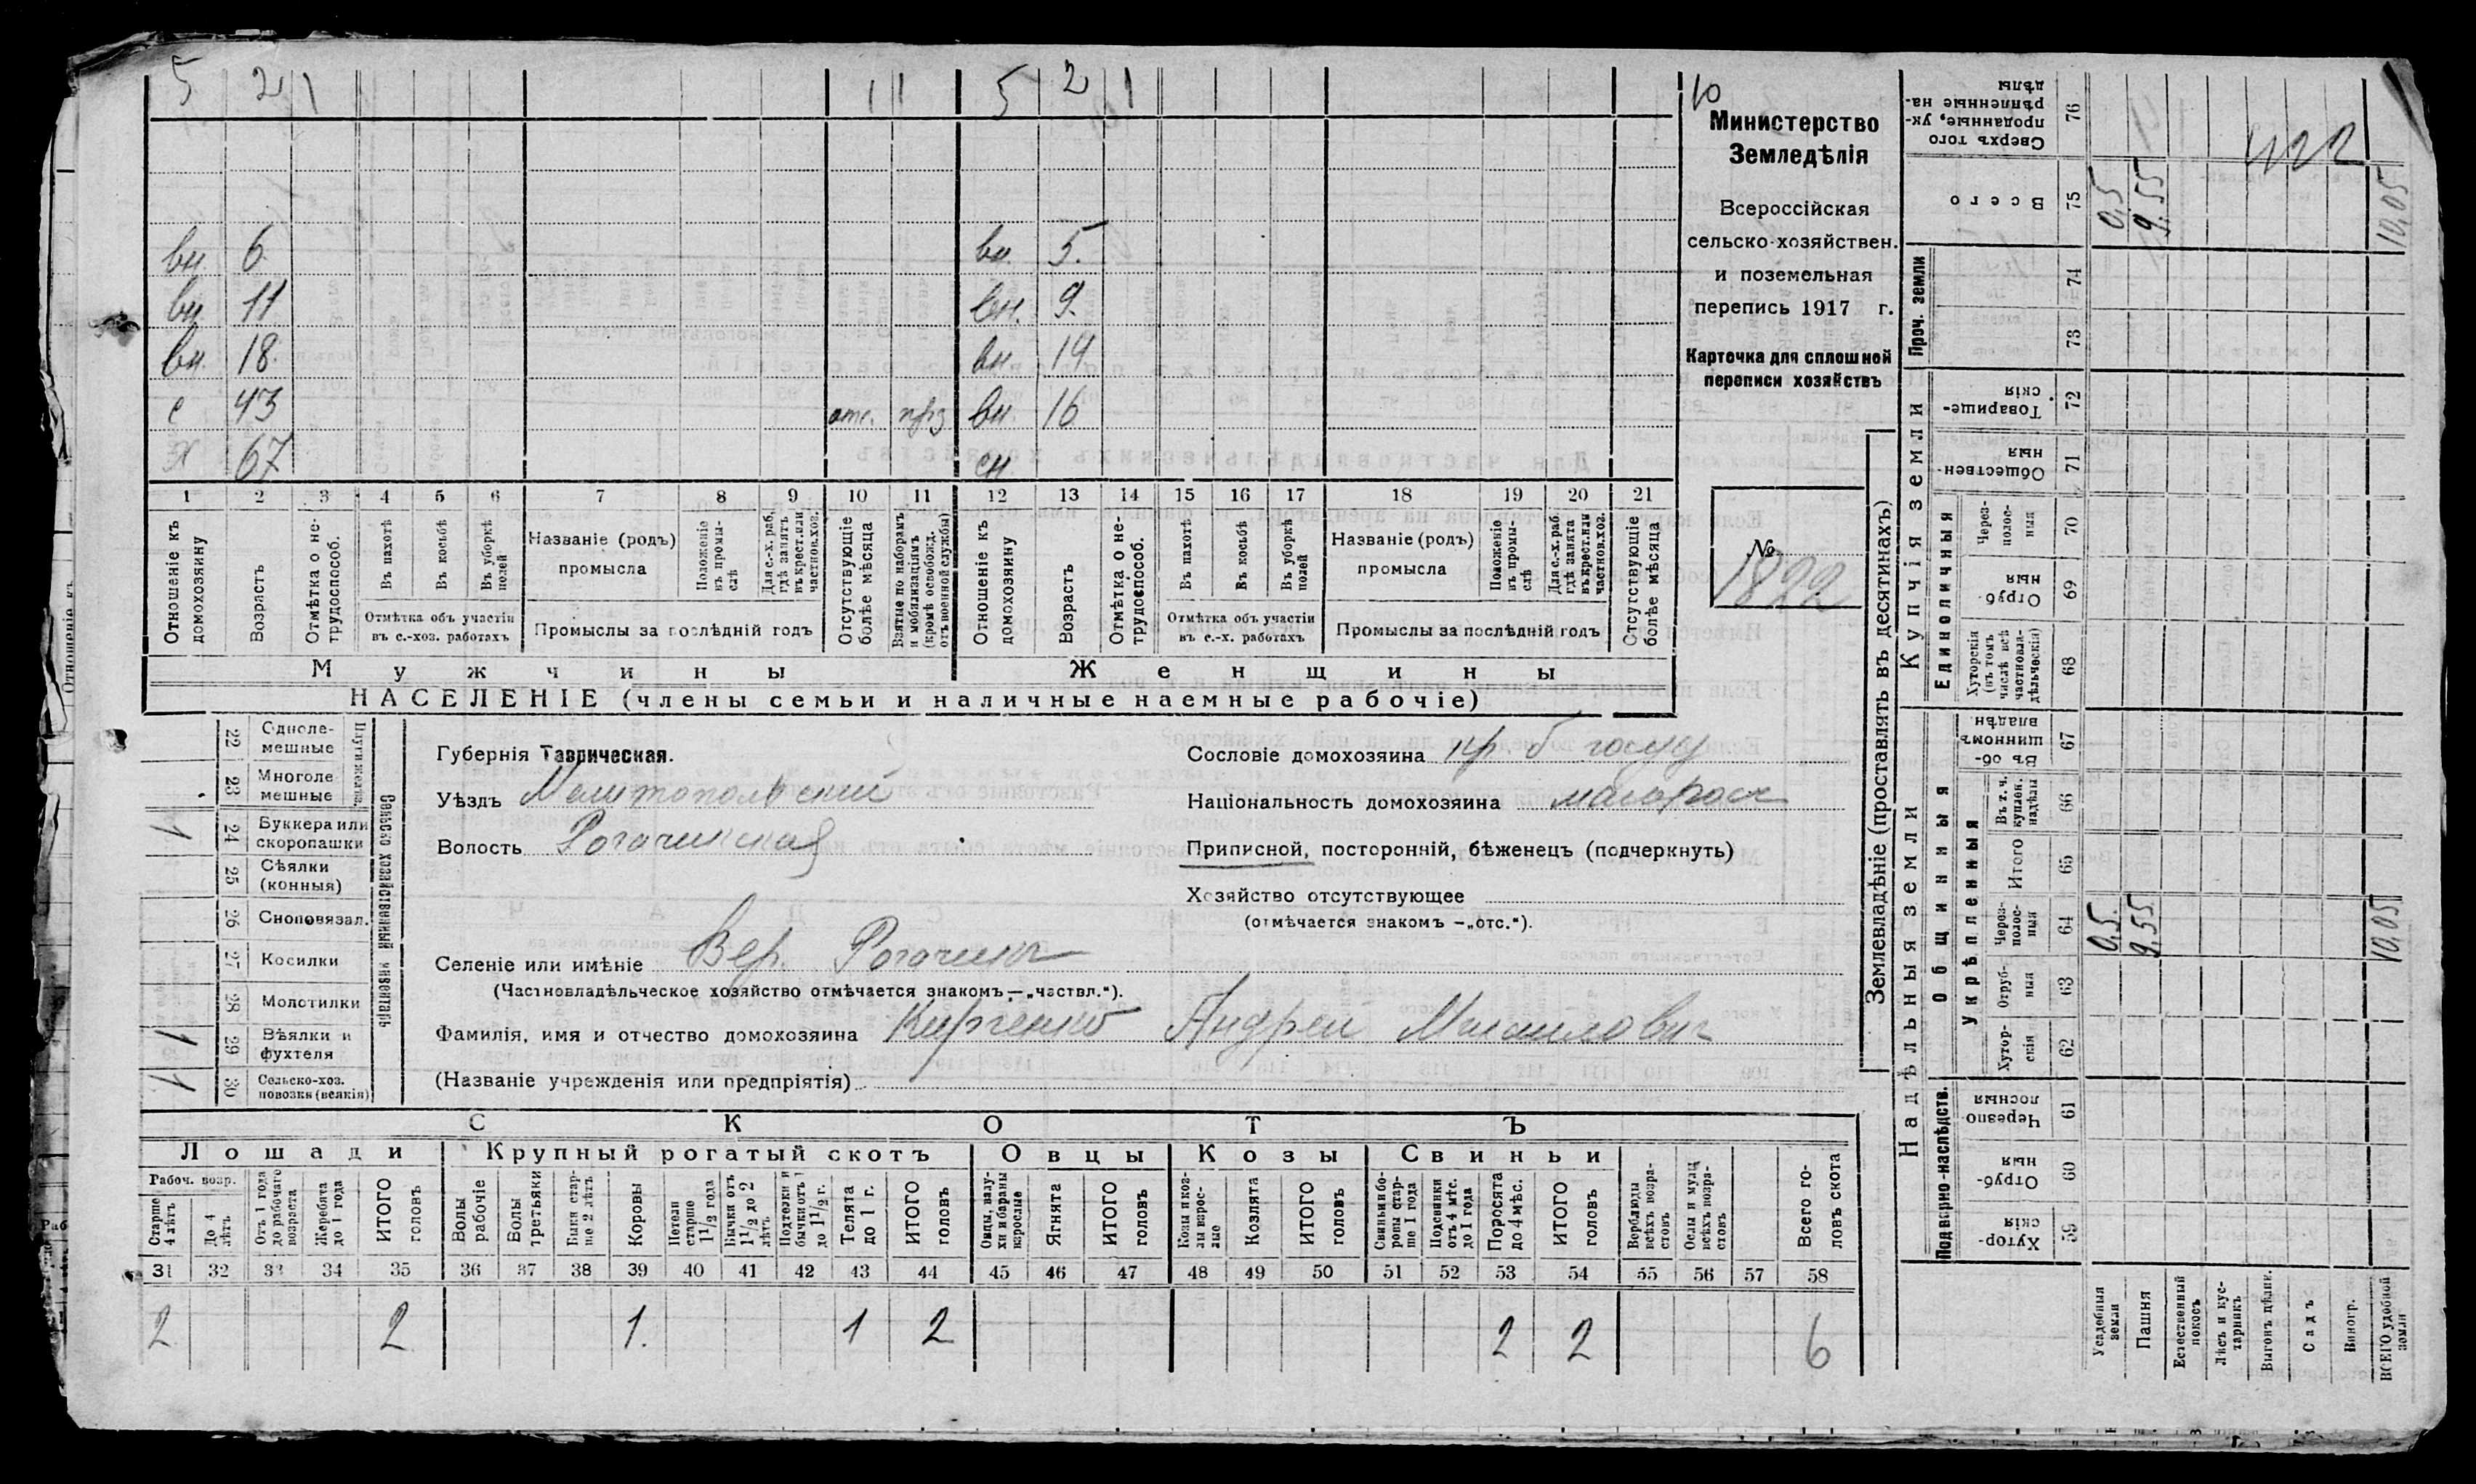 5 2 1 11 5 2 1
вн 6 вн. 5.
вн 11 вн. 9.
вн. 18. вн.
с 43 отс. прз вн. 16
х 67 сн.
1 2 3 4 5 6 7 8 9 10 11 12 13 14 15 16 17 18 19 20 21
Отношеніе къ домохозяину
Возрастъ
Отмѣтка о не-трудоспособ.
Въ пахотѣ
Въ косьбѣ
Въ уборкѣ полей
Отмѣтка объ участіи въ с.-хоз. работахъ
Названіе (родъ) промысла
Положеніе въ промы-слѣ
Для с.-х. раб. гдѣ занятъ въ крест. или частнов. хоз.
Промыслы за послѣдній годъ
Отсутствующіе болѣе мѣсяца
Взятые по наборамъ и мобилизаціямъ (кромѣ освобожд. отъ военной службы)
Отношеніе къ домохозяину
Возрастъ
Отмѣтка о не-трудоспособ.
Въ пахотѣ
Въ косьбѣ
Въ уборкѣ полей
Отмѣтка объ участіи въ с.-х. работахъ
Названіе (родъ) промысла
Положеніе въ промы-слѣ
Для с.-х. раб. гдѣ занята въ крест. или частнов. хоз.
Промыслы за послѣдній годъ
Отсутствующіе болѣе мѣсяца
Мужчины Женщины
НАСЕЛЕНІЕ (члены семьи и наличные наемные рабочіе)
10
Министерство
Земледѣлія
Всероссійская
сельско-хозяйствен.
и поземельная
перепись 1917 г.
Карточка для сплошной
переписи хозяйствъ
№
1822
22 Одноле-мешные
23 Многоле мешные
24 Буккера или скоропашки 1
25 Сѣялки (конныя)
26 Сноповязал.
27 Косилки
28 Молотилки
29 Вѣялки и фухтеля 1
30 Сельско-хоз. повозки (всякія) 1
Сельско хозяйственный инвентарь
Губернія Таврическая.
Уѣздъ Мелитопольскій
Волость Рогачикская
Селеніе или имѣніе Вер. Рогачикъ
(Частновладѣльческое хозяйство отмѣчается знакомъ—„частвл.“).
Фамилія, имя и отчество домохозяина Кирченко Андрей Михайлович
(Названіе учрежденія или предпріятія)
Сословіе домохозяина кр б госуд
Національность домохозяина малоросс
Приписной, посторонній, бѣженецъ (подчеркнуть)
Хозяйство отсутствующее
(отмѣчается знакомъ —„отс.“).
СКОТЪ
Лошади Крупный рогатый скотъ Овцы Козы Свиньи
Рабоч. возр.
Старше 4 лѣтъ
До 4 лѣтъ
Отъ 1 года до рабочаго возраста
Жеребята до 1 года
ИТОГО головъ
Волы рабочіе
Волы третьяки
Быки стар-ше 2 лѣтъ
Коровы
Нетели старше 1 1/2 года
Бычки отъ 1 1/2 до 2 лѣтъ
Подтелки и бычки отъ 1 до 1 1/2 г.
Телята до 1 г.
ИТОГО головъ
Овцы, валу-хи и бараны взрослые
Ягнята
ИТОГО головъ
Козы и коз-лы взрос-лые
Козлята
ИТОГО головъ
Свиньи и бо-ровы стар-ше 1 года
Подсвинки отъ 4 мѣс. до 1 года
Поросята до 4 мѣс.
ИТОГО головъ
Верблюды всѣхъ возра-стовъ
Ослы и мулы всѣхъ возра-стовъ
Всего го-ловъ скота
31 32 33 34 35 36 37 38 39 40 41 42 43 44 45 46 47 48 49 50 51 52 53 54 55 56 57 58
2 2 1. 1 2 2 2 6
Землевладѣніе (проставлять въ десятинахъ)
Надѣльныя земли Купчія земли Проч. земли
Подворно-наслѣдств. Общинныя Единоличныя
Укрѣпленныя
Хутор-скія 59
Отруб-ныя 60
Черезпо лосныя 61
Хутор-скія 62
Отруб-ныя 63
Через-полос-ныя 64
Итого 65
Въ т. ч. куплен. надѣлы 66
Въ об-щинномъ владѣн 67
Хуторскія (въ томъ числѣ всѣ частновла-дѣльческія) 68
Отруб-ныя 69
Через-полос-ныя 70
Обществен-ныя 71
Товарище-скія 72
73
74
Всего 75
Сверхъ того проданные, ук-рѣпленные на-дѣлы 76
Усадебныя земли 0,5. 0,5
Пашня 9,55 9,55
Естественный покосъ
Лѣсъ и кус-тарникъ
Выгонъ дѣлян.
Садъ
Виногр.
ВСЕГО удобной земли 10,05 10,05
422